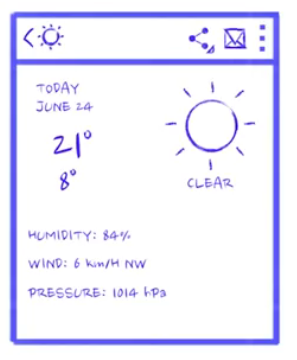 TODAY
JUNE 24
21°
8°
CLEAR
HUMIDITY: 84%
WIND: 6 km/H NW
PRESSURE: 1014 hPa